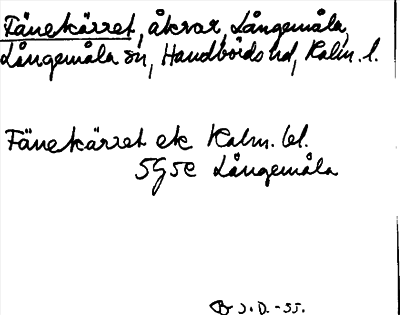 Fänekärret, åkrar, Långemåla,
Långemåla sn, Handbörds hd, Kalm. l.
Fänekärret ek Kalm. bl.
5G5e Långemåla
J.D. -55.